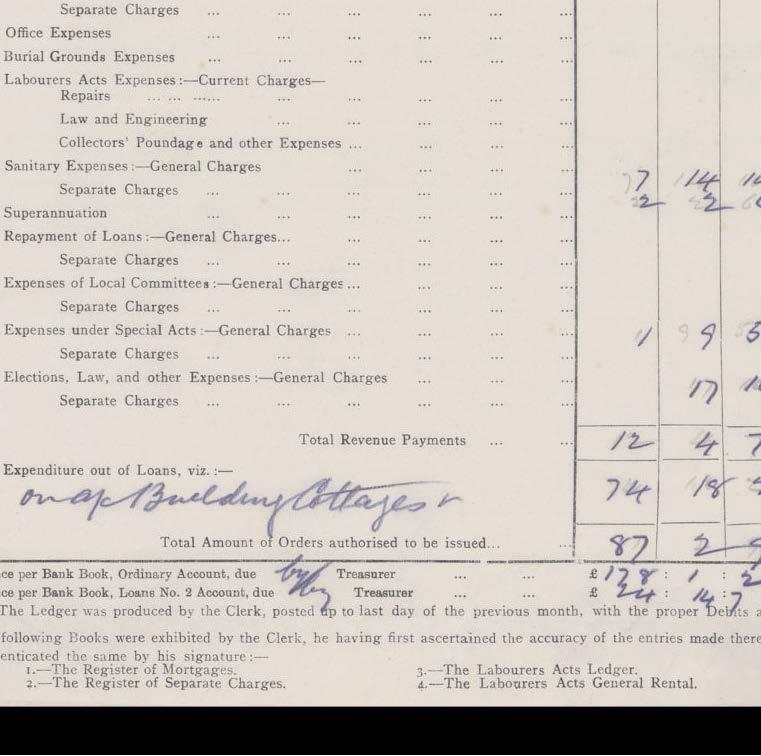 Separate Charges ... ... ... ... ...
Office Expenses ... ... ... ... ...
Burial Grounds Expenses ... ... ... ... ...
Labourers Acts Expenses:—Current Charges—
Repairs ... ... ... ... ... ... ...
Law and Engineering ... ... ... ...
Collectors' Poundage and other Expenses ... ... ...
Sanitary Expenses:—General Charges ... ... ... 7 14
Separate Charges ... ... ... ... ... 2 2
Superannuation ... ... ... ... ...
Repayment of Loans:—General Charges... ... ... ...
Separate Charges ... ... ... ... ...
Expenses of Local Committees:—General Charges... ... ...
Separate Charges ... ... ... ... ...
Expenses under Special Acts:—General Charges ... ... ... 1 9
Separate Charges ... ... ... ... ...
Elections, Law, and other Expenses:—General Charges ... ... 17
Separate Charges ... ... ... ... ...
Total Revenue Payments ... ... 12 4 7
Expenditure out of Loans, viz.:—
on a/c Building Cottages 74 18
Total Amount of Orders authorised to be issued... ... 87 2
ce per Bank Book, Ordinary Account, due by Treasurer ... ... £ 178 : 1 : 2
ce per Bank Book, Loans No. 2 Account, due by Treasurer ... ... £ 24 : 14 : 7
The Ledger was produced by the Clerk, posted up to last day of the previous month, with the proper Debits a
following Books were exhibited by the Clerk, he having first ascertained the accuracy of the entries made there
enticated the same by his signature:—
1.—The Register of Mortgages. 3.—The Labourers Acts Ledger.
2.—The Register of Separate Charges. 4.—The Labourers Acts General Rental.